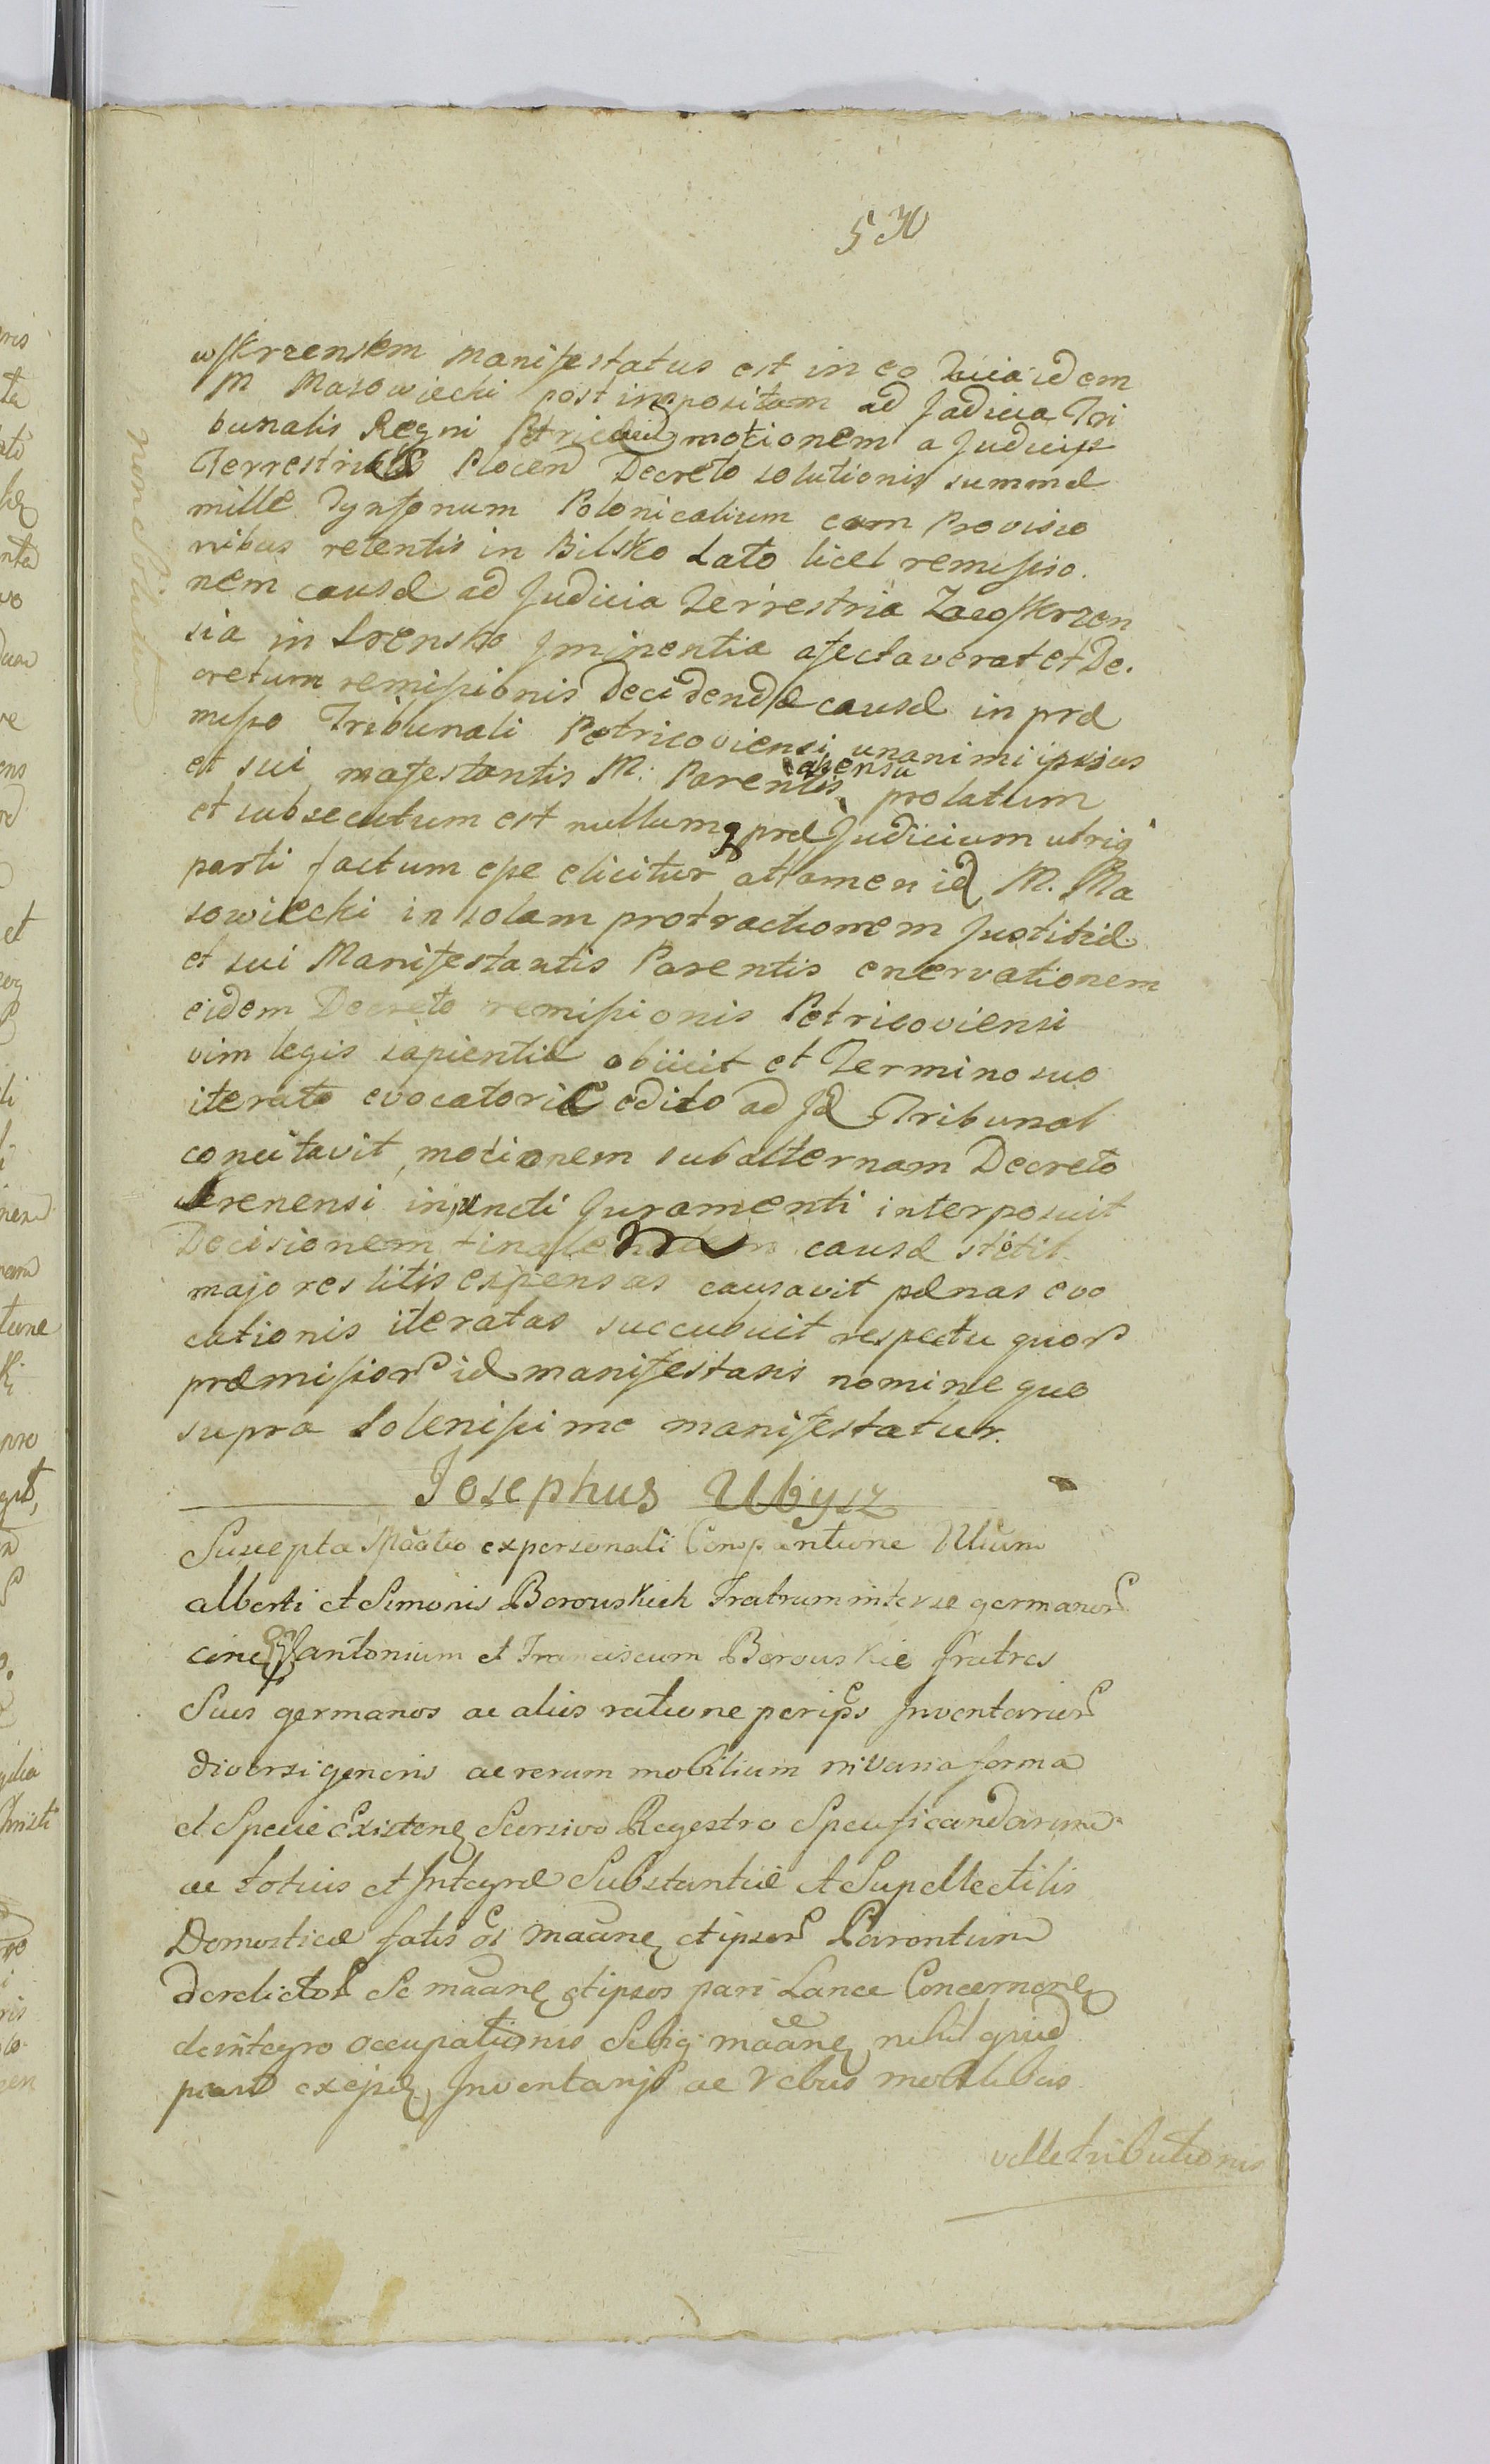 530
wskrzensem manifestatus est in eo quia idem
M Masowiecki post impositam ad Judicia Tri
bunalis Regni motionem a Judicijs
Terrestribus Plocen Decreto solutionis summæ
mille Tynfonum Polonicalium cum Provisio
nibus retentis in Bilsko Lato licet remissio.
nem causæ ad Judicia Terrestria Zawskrzen
sia in Srensko Iminentia afectaverat et De.
cretum remissionis Decidendæ causæ in præ
misso Tribunali Petricoviensi unanimi ipsius
et sui mafestantis M: Parentis assensu prolatum
et subsecutum est nullumq præ Judicium utriq
parti factum esse elicitur attamen id M. Ma
sowiecki in solam protractionem Justitiæ
et sui Manifestantis Parentis enervationem
eidem Decreto remissionis Petricoviensi
vim legis sapientiæ obiicit et Termino suo
iterato evocatorie edito ad Id Tribunal
concitavit, motionem subalternam Decreto
Srenensi injuncti Juramenti interposuit
Decisionem finalem causæ stetit
majores litis expensas causavit pœnas evo
cationis iteratas succubuit respectu quor
præmissor id manifestans nomine quo
supra Solenissime manifestatur.
Josephus Ubysz
Suscepta expersonali Comparitione
alberti et Simonis Borowskich Fratrum inter se germanor
antonium et Franciscum Borowskie fratres
Suos germanos ac alios ratione Inventarior
diversi generis ac rerum mobilium in varia forma
et Specie Existen Seorsivo Regestro Specificandarum
ac totius et Integræ Substantiæ et Supellectilis
Domesticæ fatis Maane et ipsor Parentum
derelictor Se maane et ipsos pari Lance Concernen
de integro occupationis Sibiq maane nihil quid
Inventarijs ac rebus mobilibus
velle tributionis